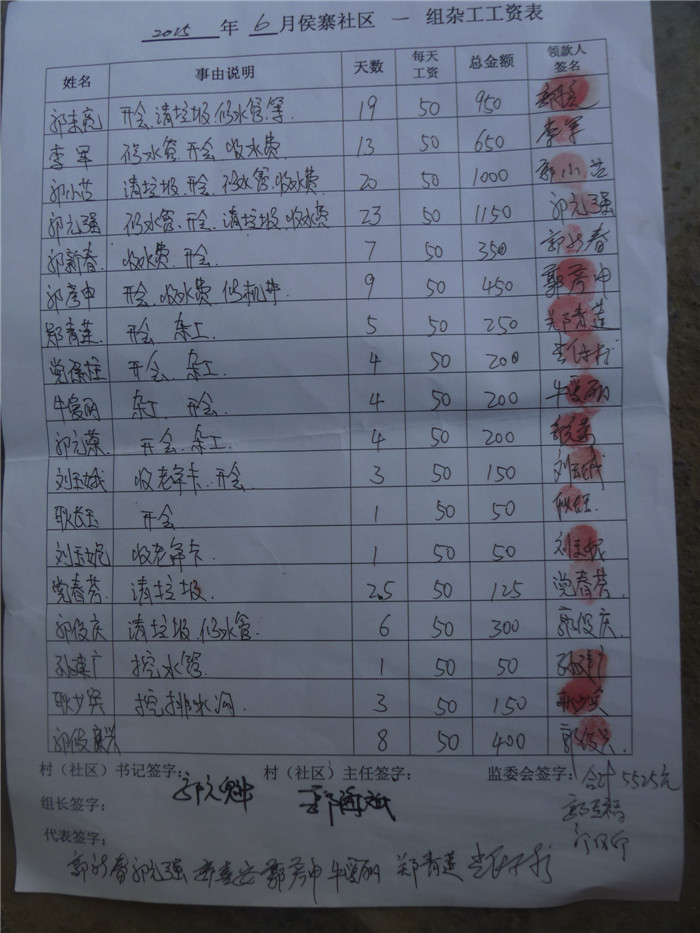 2015 年 6 月侯寨社区 一 组杂工工资表
姓名 事由说明 天数 每天工资 总金额 领款人签名
开会、清垃圾、修水管等 19 50 950
李军 修水管、开会、收水费 13 50 650 李军
郭小芬 清垃圾、开会、修水管、收水费 20 50 1000 郭小芬
郭元强 修水管、开会、清垃圾、收水费 23 50 1150 郭元强
郭新春 收水费、开会 7 50 350 郭新春
郭彦申 开会、收水费、修机井 9 50 450 郭彦申
郑青莲 开会、杂工 5 50 250 郑青莲
党保柱 开会、杂工 4 50 200
牛爱丽 杂工、开会 4 50 200 牛爱丽
郭元荣 开会、杂工 4 50 200
刘玉娥 收老年卡、开会 3 50 150 刘玉娥
耿长玉 开会 1 50 50
刘玉妮 收老年卡 1 50 50 刘玉妮
党春芬 清垃圾 2.5 50 125 党春芬
郭俊庆 清垃圾、修水管 6 50 300 郭俊庆
孙建广 挖水管 1 50 50 孙建广
耿少宾 挖排水沟 3 50 150 耿少宾
郭俊兴 8 50 400 郭俊兴
村（社区）书记签字： 村（社区）主任签字： 监委会签字： 合计 5525元
郭元魁
组长签字：
代表签字：
郭新春 郭元强 郭彦申 牛爱丽 郑青莲